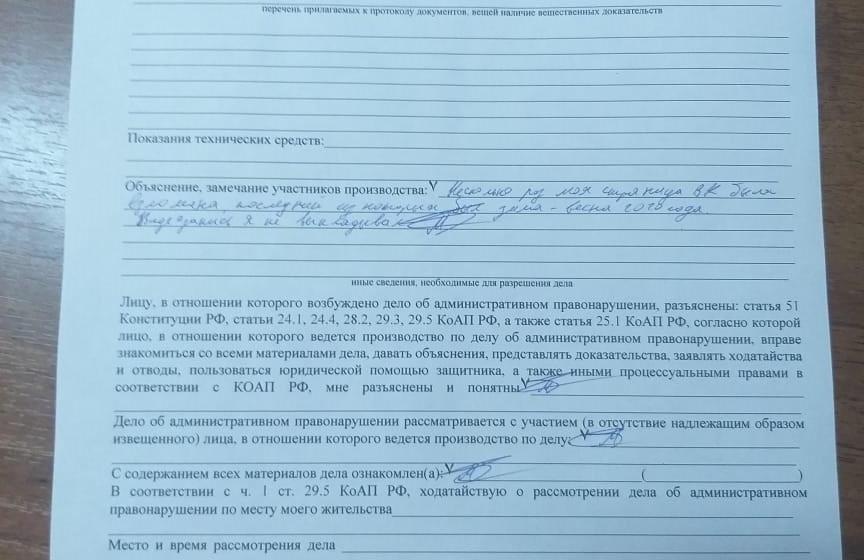 перечень прилагаемых к протоколу документов, вещей наличие вещественных доказательств
Показания технических средств:
Объяснение, замечание участников производства: V Несколько раз моя страница ВК была
взломана, последний из которых был зима - весна 2020 года.
Видеозапись я не выкладывал
иные сведения, необходимые для разрешения дела
Лицу, в отношении которого возбуждено дело об административном правонарушении, разъяснены: статья 51
Конституции РФ, статьи 24.1, 24.4, 28.2, 29.3, 29.5 КоАП РФ, а также статья 25.1 КоАП РФ, согласно которой
лицо, в отношении которого ведется производство по делу об административном правонарушении, вправе
знакомиться со всеми материалами дела, давать объяснения, представлять доказательства, заявлять ходатайства
и отводы, пользоваться юридической помощью защитника, а также иными процессуальными правами в
соответствии с КОАП РФ, мне разъяснены и понятны V
Дело об административном правонарушении рассматривается с участием (в отсутствие надлежащим образом
извещенного) лица, в отношении которого ведется производство по делу: V
С содержанием всех материалов дела ознакомлен(а): V ( )
В соответствии с ч. 1 ст. 29.5 КоАП РФ, ходатайствую о рассмотрении дела об административном
правонарушении по месту моего жительства
Место и время рассмотрения дела